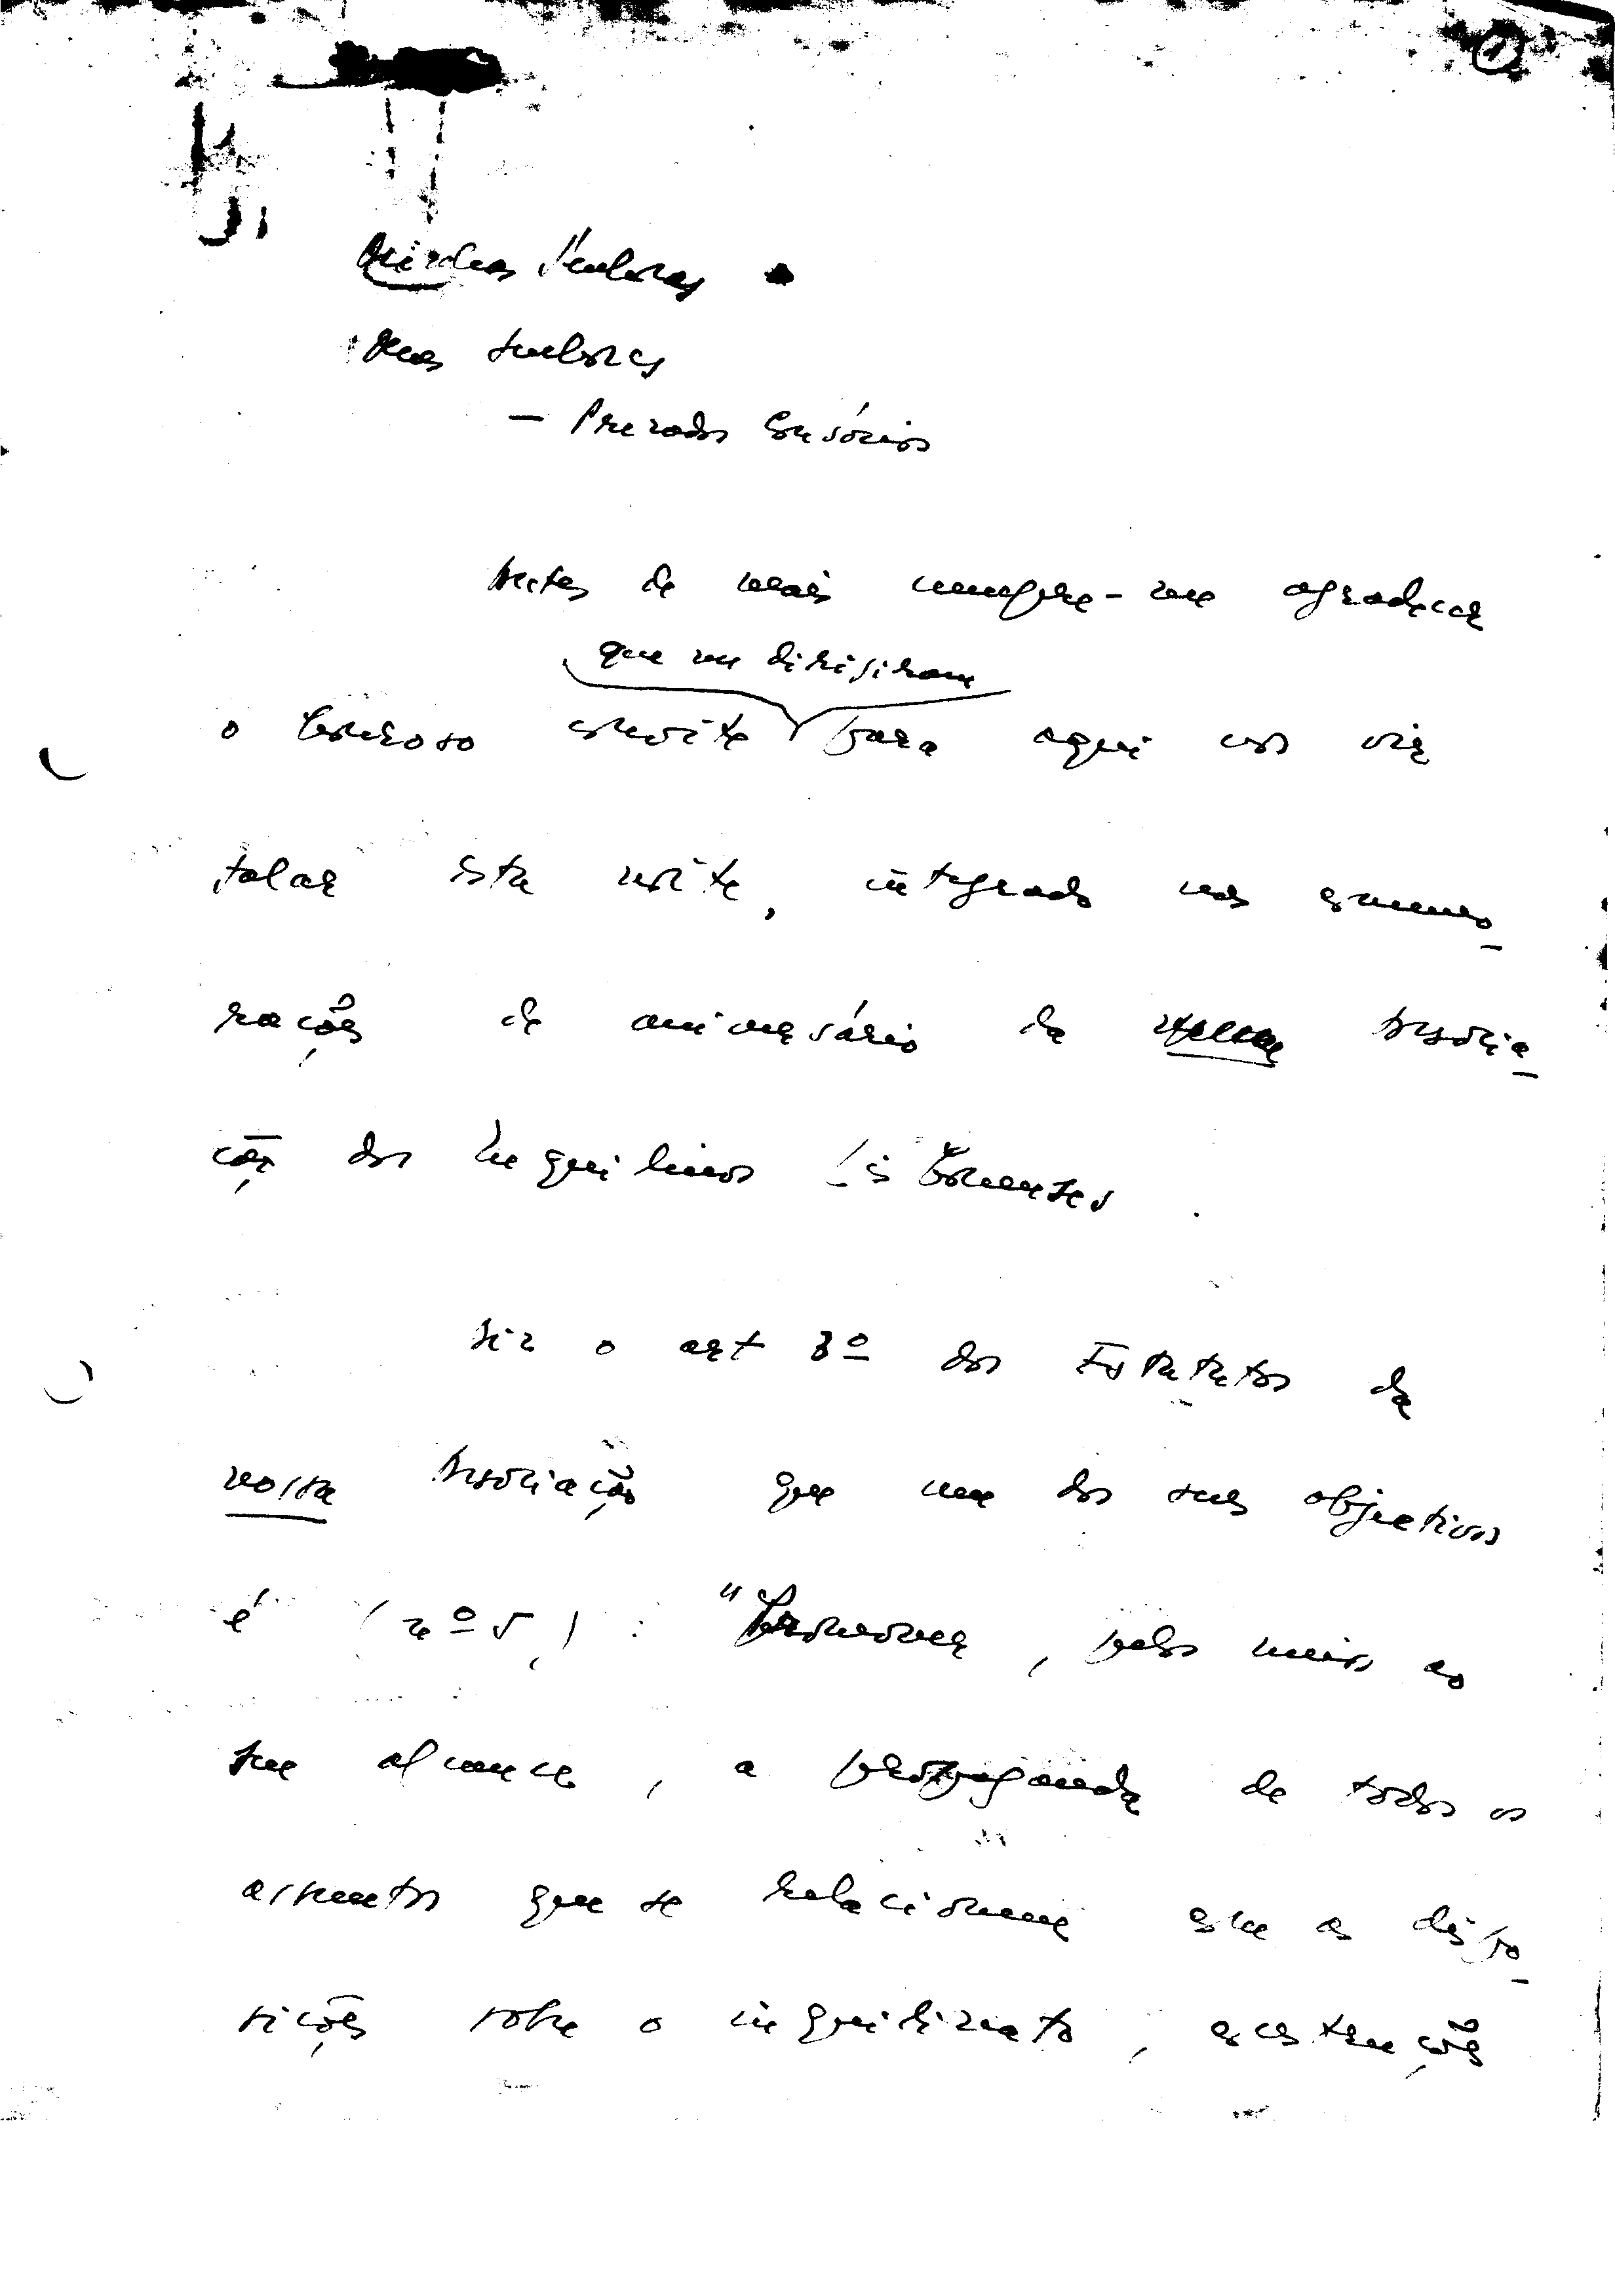 1
Minhas Senhoras
Meus Senhores
— Prezados Consócios
Antes de mais cumpre-me agradecer
que me dirigiram
o honroso convite para aqui vos vir
falar esta noite, integrado nas comemo-
rações de aniversário da Associa-
ção dos Inquilinos Lisbonenses.
Diz o art 3º dos Estatutos da
vossa Associação que um dos seus objectivos
é (nº 5): "Promover, pelos meios ao
seu alcance, a propaganda de todos os
assuntos que se relacionem com as dispo-
sições sobre o inquilinato, construções